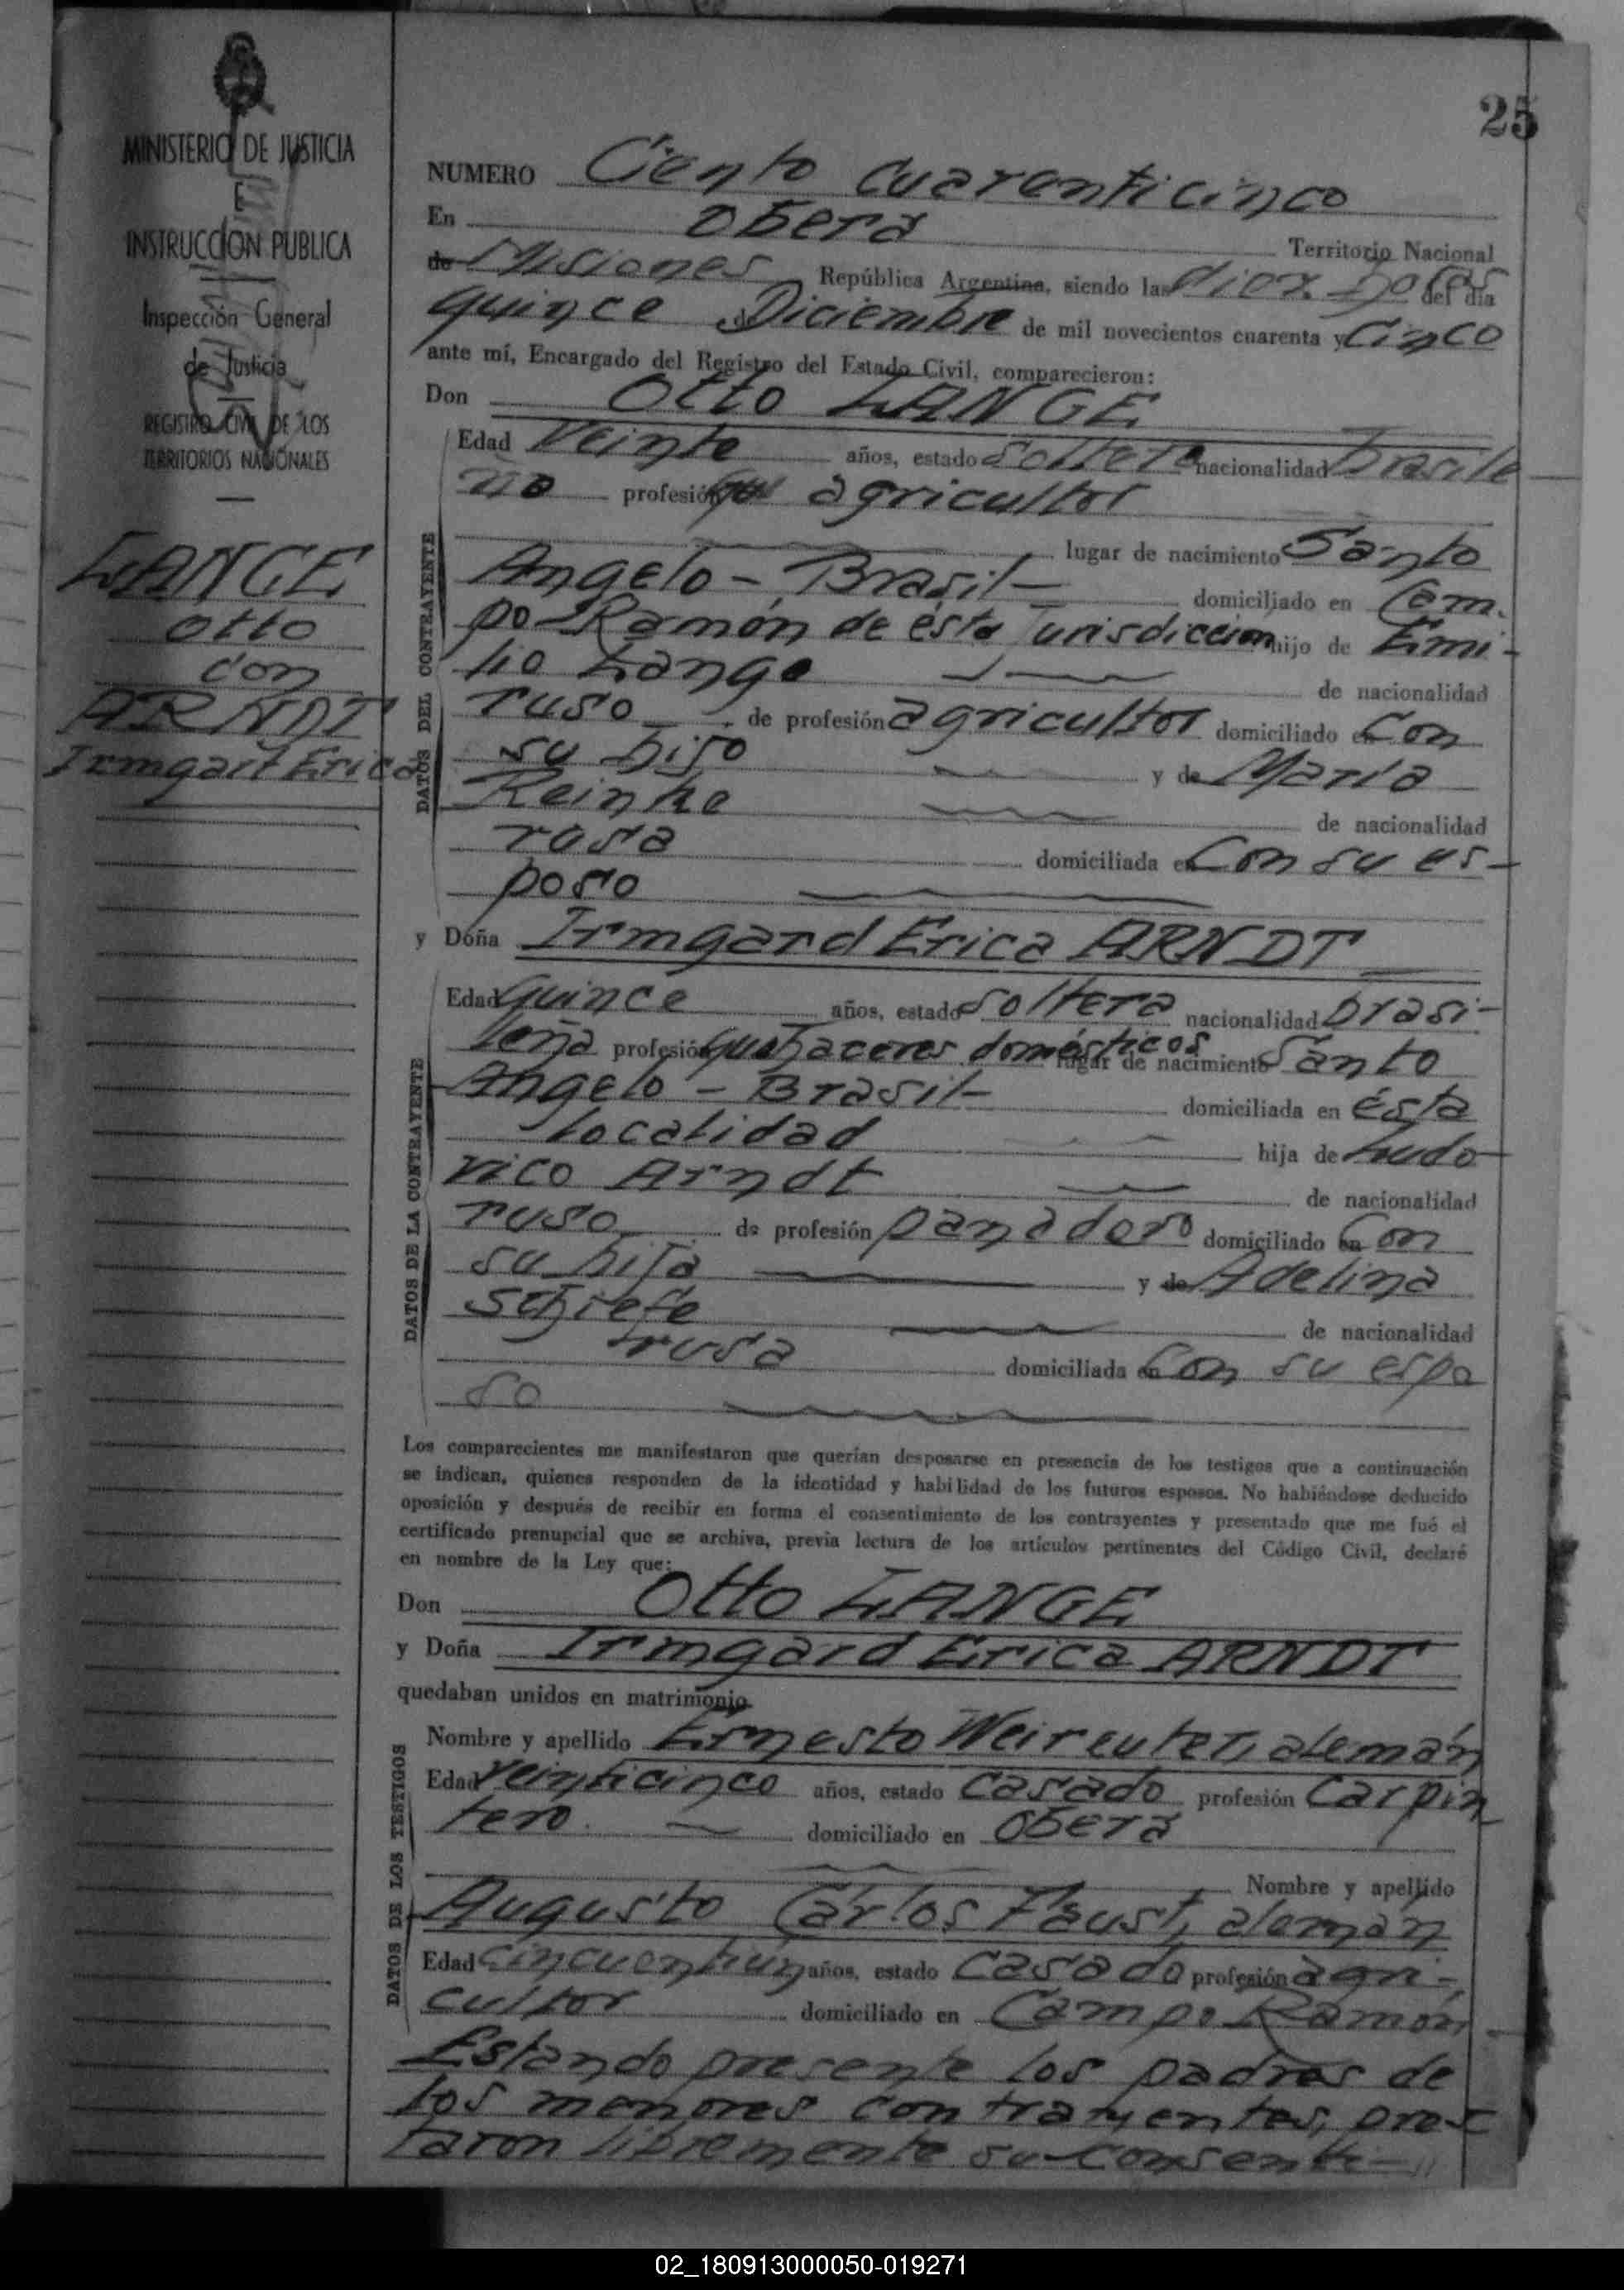 25
MINISTERIO DE JUSTICIA
E
INSTRUCCION PUBLICA
Inspección General
de Justicia
REGISTRO CIVIL DE LOS
TERRITORIOS NACIONALES
LANGE
Otto
con
ARNDT
Irmgart Erica
NUMERO Ciento cuarenticinco
En Oberá Territorio Nacional
de Misiones República Argentina, siendo las diez horas del día
quince de Diciembre de mil novecientos cuarenta y Cinco
ante mí, Encargado del Registro del Estado Civil, comparecieron:
Don Otto LANGE
DATOS DEL CONTRAYENTE
Edad Veinte años, estado soltero nacionalidad brasile
no profesión agricultor
lugar de nacimiento Santo
Angelo - Brasil - domiciliado en Cam.
po Ramón de ésta Jurisdicción hijo de Emi-
lio Lange de nacionalidad
ruso de profesión agricultor domiciliado en Con
su hijo y de María
Reinke de nacionalidad
rusa domiciliada en Con su es-
poso
y Doña Irmgard Erica ARNDT
DATOS DE LA CONTRAYENTE
Edad quince años, estado soltera nacionalidad brasi-
leña profesión quehaceres domésticos lugar de nacimiento Santo
Angelo - Brasil - domiciliada en ésta
localidad hija de Ludo
vico Arndt de nacionalidad
ruso de profesión panadero domiciliado en Con
su hija y de Adelina
Schiefe de nacionalidad
rusa domiciliada en Con su espo
so
Los comparecientes me manifestaron que querían desposarse en presencia de los testigos que a continuación
se indican, quienes responden de la identidad y habilidad de los futuros esposos. No habiéndose deducido
oposición y después de recibir en forma el consentimiento de los contrayentes y presentado que me fué el
certificado prenupcial que se archiva, previa lectura de los artículos pertinentes del Código Civil, declaré
en nombre de la Ley que:
Don Otto LANGE
y Doña Irmgard Erica ARNDT
quedaban unidos en matrimonio.
DATOS DE LOS TESTIGOS
Nombre y apellido Ernesto Weireuter, alemán
Edad veinticinco años, estado casado profesión Carpin
tero. domiciliado en Oberá
Nombre y apellido
Augusto Carlos Faust, alemán
Edad cincuentiún años, estado casado profesión agri-
cultor domiciliado en Campo Ramón -
Estando presente los padres de
los menores contrayentes, pres
taron libremente su consenti-
02_180913000050-019271